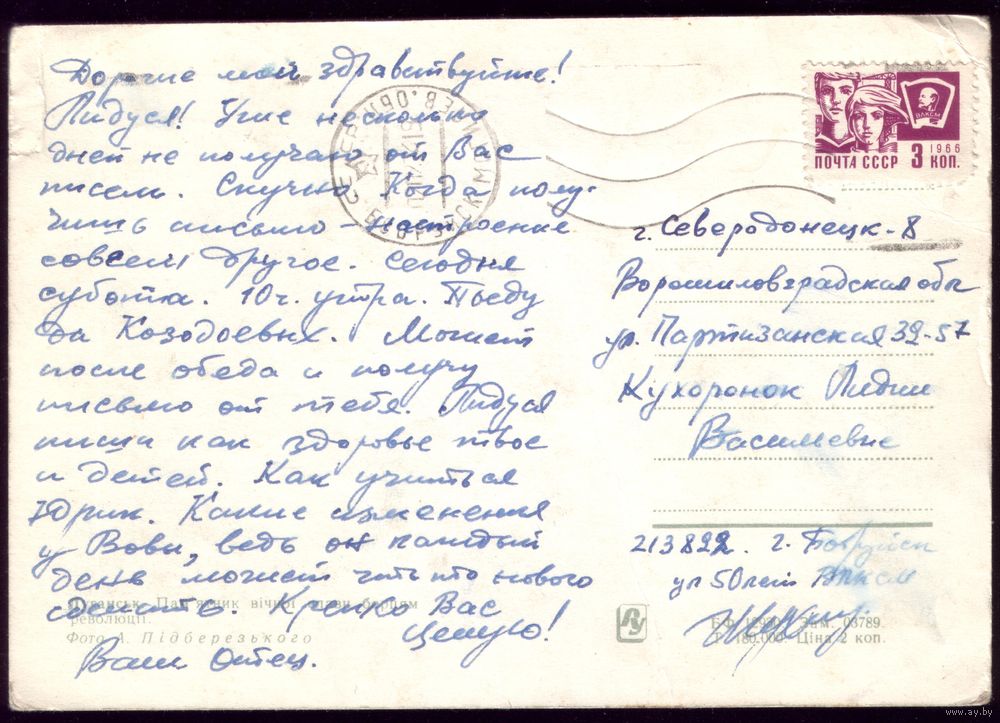 Дорогие мои здравствуйте!
Лидуся! Уже несколько
дней не получаю от Вас
писем. Скучно. Когда полу-
чишь письмо - настроение
совсем другое. Сегодня
субота. 10 ч. утра. Поеду
до Козодоевых. Может
после обеда и получу
письмо от тебя. Лидуся
пиши как здоровье твое
и детей. Как учиться
Юрик. Какие изменения
у Вовы, ведь он каждый
день может что то нового
сделать. Крепко Вас
целую!
Ваш Отец.
Луганськ. Пам'ятник вічної слави борцям
революції.
Фото А. Підберезького
ВЛКСМ
1966
ПОЧТА СССР 3 КОП.
г. Северодонецк-8
Ворошиловградская обл
ул. Партизанская 39-57
Кухоронок Лидии
Васильевне
213822. г. Бобруйск
ул 50 лет ВЛКСМ
БФ Зам. 03789.
Т. 180.000 Ціна 2 коп.
www.ay.by